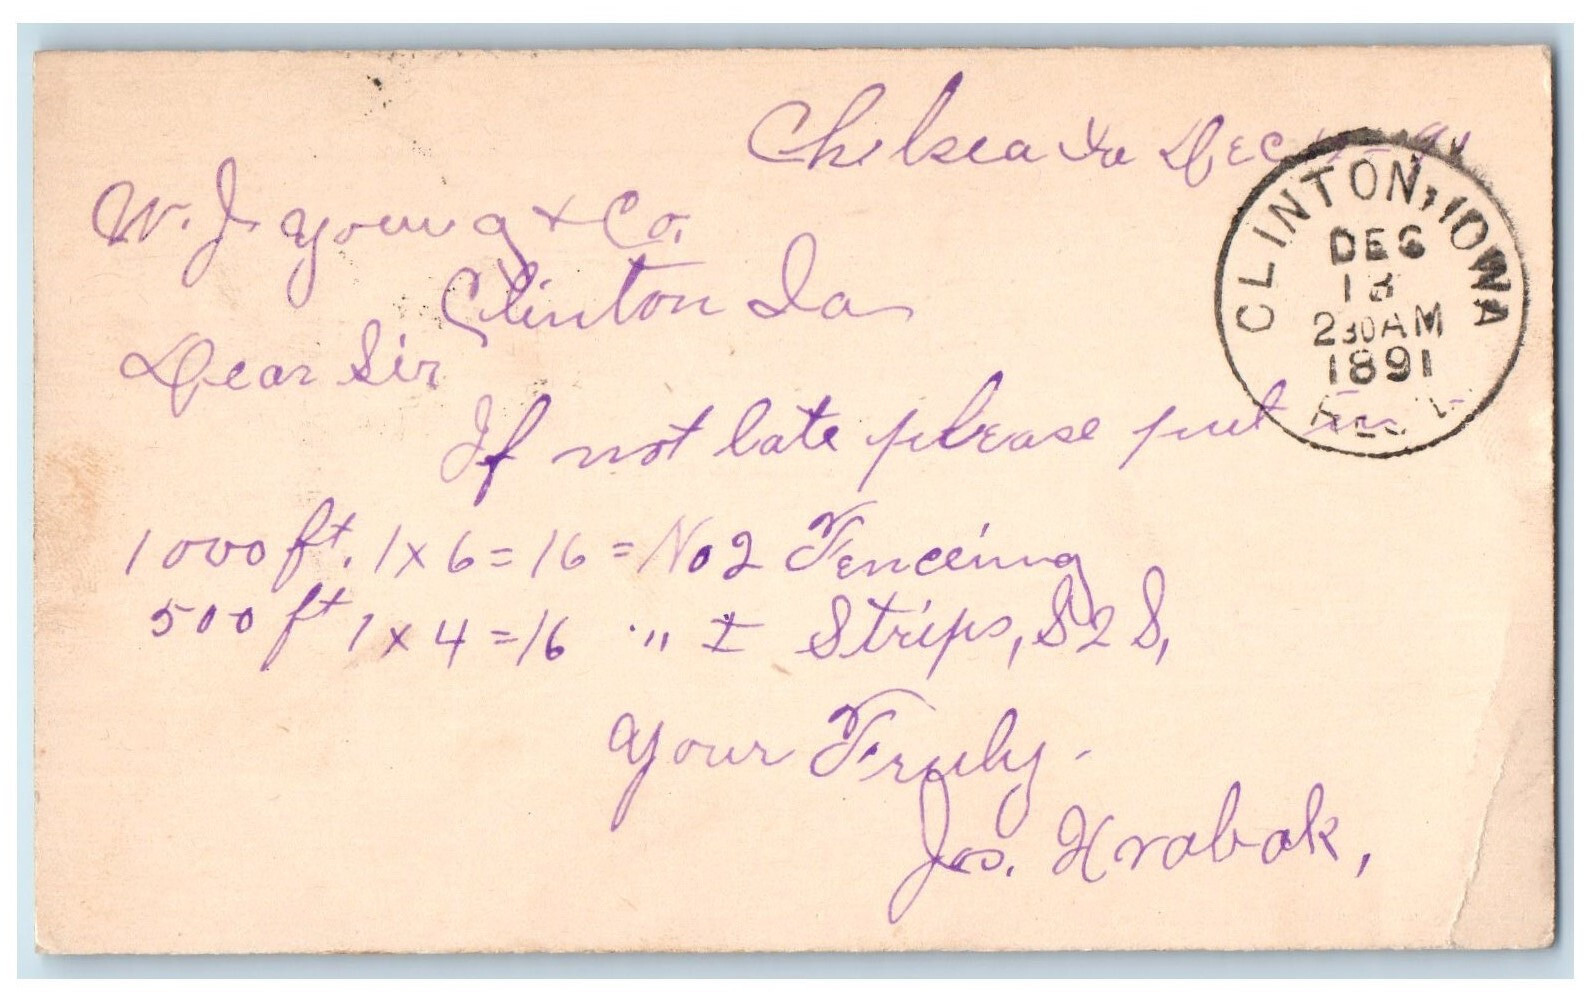 Chelsea Ia Dec
W. J. Young & Co.
Clinton Ia
Dear Sir
If not late please put in
1000 ft. 1 x 6 = 16 = No 2 Fenceing
500 ft 1 x 4 = 16 " I Strips, S2S,
Your Truly.
Jos. Hrabak,
CLINTON, IOWA
DEC
13
230AM
1891